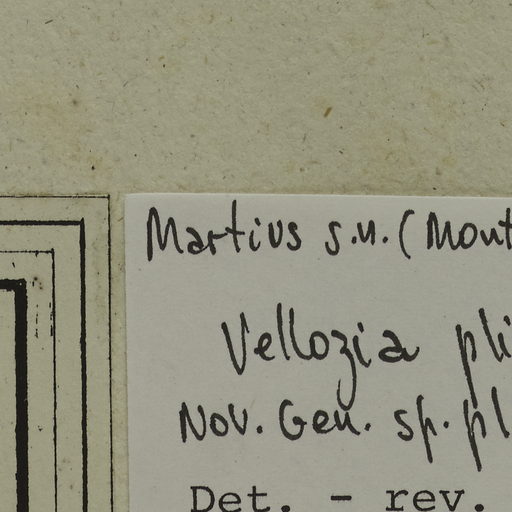 Martius s.n. (Mont
Vellozia pli
Nov. Gen. sp. pl
Det. - rev.